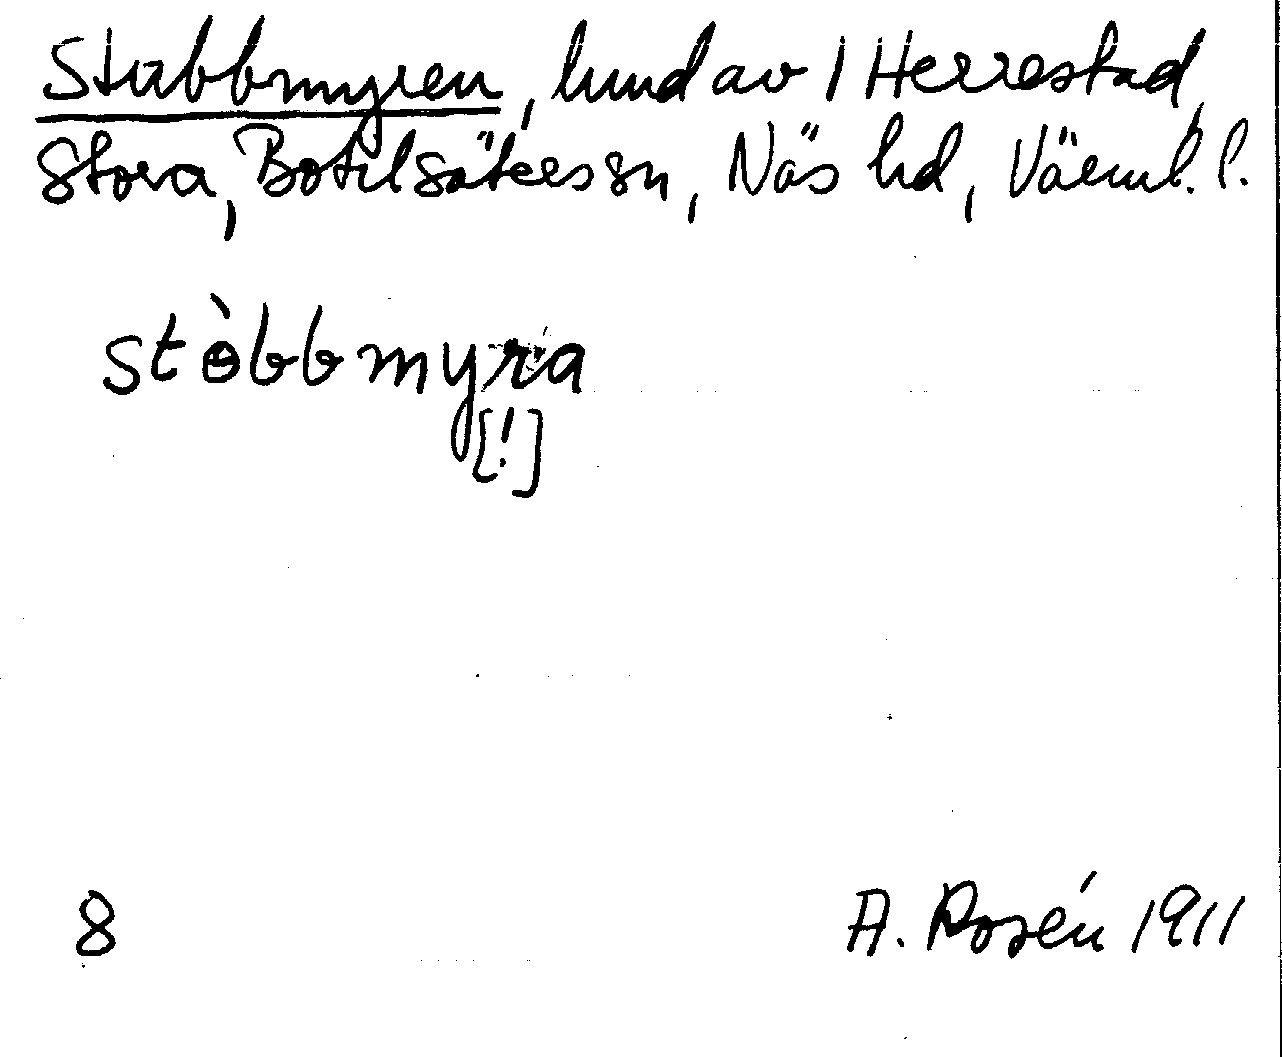 Stubbmyren, hmd av 1 Herrestad,
Stora, Botilsäters sn, Näs hd, Värml. l.
stèbbmyra
[!]
8
A. Rosén 1911